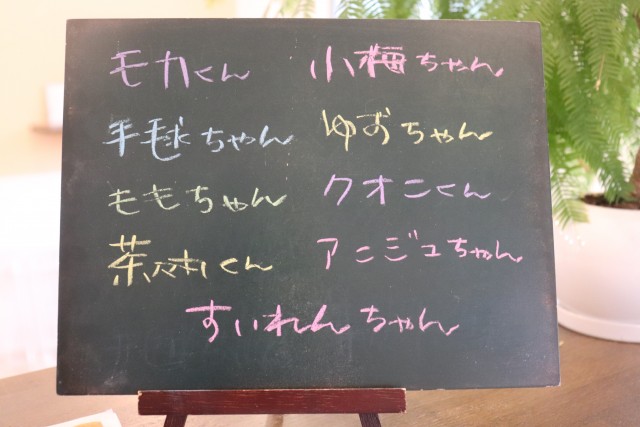 モカくん 小梅ちゃん
手毬ちゃん ゆずちゃん
ももちゃん クオニくん
茶々丸くん アニジュちゃん
すいれんちゃん